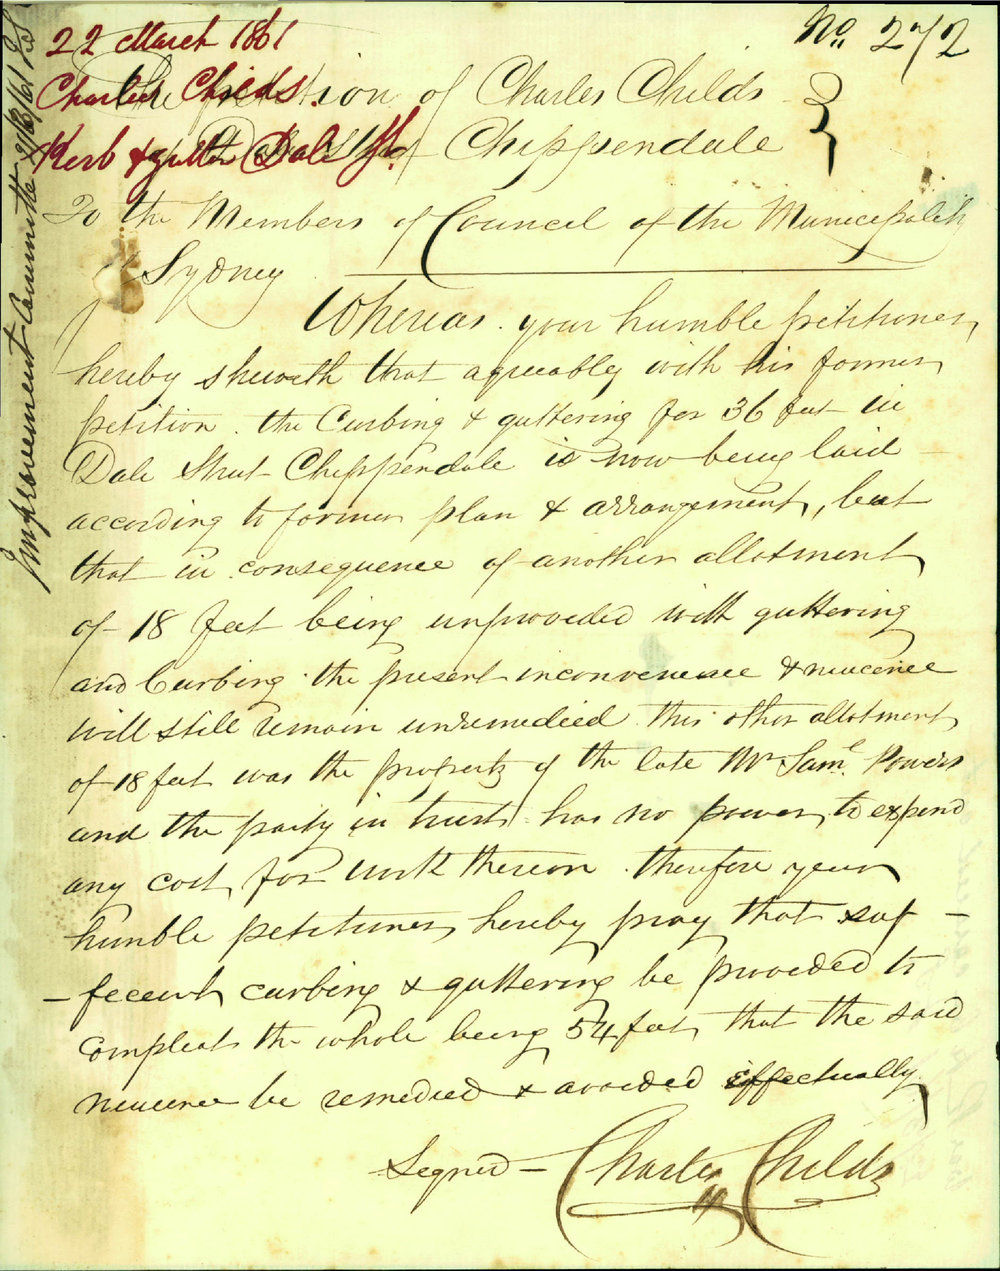 No. 272
22 March 1861
Charles Childs.
Kerb & gutter Dale St.
The petition of Charles Childs
Dale St Chippendale
To the Members of Council of the Municipality
of Sydney
Whereas your humble petitioner
hereby sheweth that agreeably with his former
petition the Curbing & guttering for 36 feet in
Dale Street Chippendale is now being laid
according to former plan & arrangement, but
that in consequence of another allotment
of 18 feet being unprovided with guttering
and Curbing the present inconvenience & neucence
will still remain unremedied this other allotment
of 18 feet was the property of the late Mr Saml. Powers
and the party in trust has no power to expend
any cost for work thereon therefore your
humble petitioner hereby pray that suf-
-fecient curbing & guttering be provided to
compleat the whole being 54 feet that the said
neucence be remedied & avoided effectually
Signed - Charles Childs
Improvement Committee